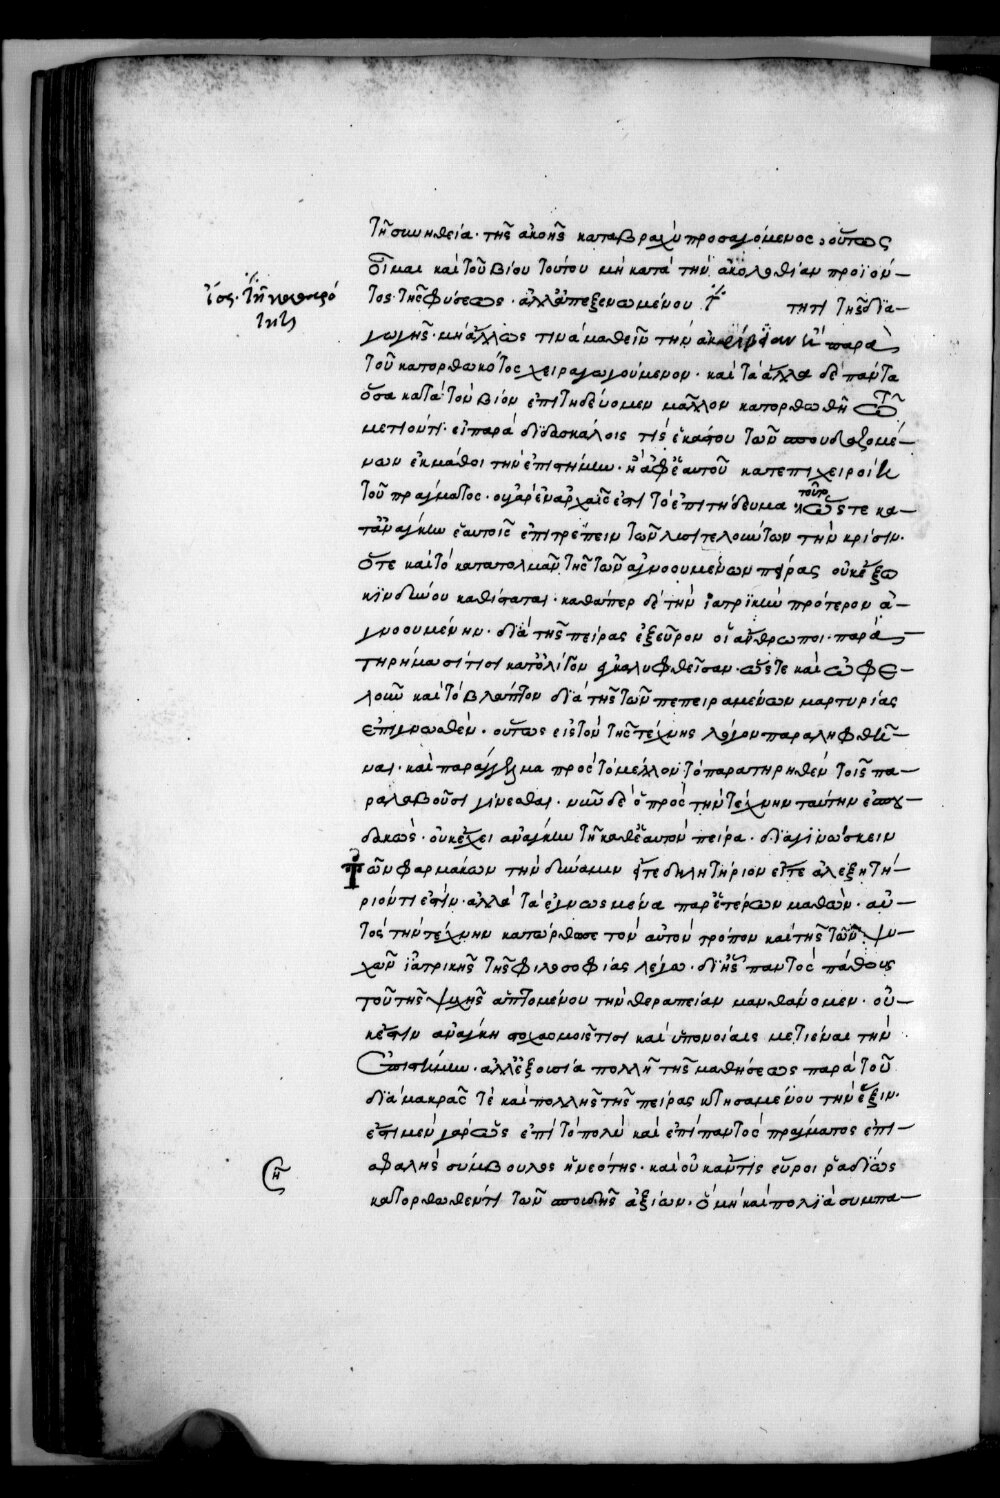 τῆ συνηθεία τῆς ἀκοῆς καταβραχὺ προσαγόμενος, οὕτως
οἶμαι καὶ τοῦ βίου τούτου μὴ κατὰ τὴν ἀκολουθίαν προϊόν–
τος τῆς φύσεως. ἀλλ' ἀπεξενωμένου τ τητι τῆς δια–
ος. τῆ καθαρό
τητι
γωγῆς. μὴ ἄλλως τινὰ μαθεῖν τὴν ἀκρίβειαν ἢ παρὰ
τοῦ κατορθωκότος χειραγωγούμενον. καὶ τὰ ἄλλα δὲ πάντα
ὅσα κατὰ τὸν βίον ἐπιτηδεύομεν μᾶλλον κατορθωθῆ τῶ
μετιόντι. εἰ παρὰ διδασκάλοις τίς ἑκάστου τῶν σπουδαζομέ–
νων ἐκμάθοι τὴν ἐπιστήμην. ἢ ἀφ' ἑαυτοῦ κατεπιχειροίη
τοῦ πράγματος. οὐ γὰρ ἐναρχαῖς ἐστι τὸ ἐπιτήδευμα τοῦτο ὥστε κα–
τ' ἀνάγκην ἑαυτοῖς ἐπιτρέπειν τῶν λυσιτελούντων τὴν κρίσιν.
ὅτε καὶ τὸ κατατολμᾶν τῆς τῶν ἀγνοουμένων πείρας οὐκ ἔξω
κινδύνου καθίσταται. καθάπερ δὲ τὴν ἰατρικὴν πρότερον ἀ–
γνοουμένην. διὰ τῆς πείρας ἐξεῦρον οἱ ἄνθρωποι. παρα–
τηρήμασί τισι κατ' ὀλίγον ἐκκαλυφθεῖσαν. ὥστε καὶ ὠφε–
λοῦν καὶ τὸ βλάπτον διὰ τῆς τῶν πεπειραμένων μαρτυρίας
ἐπιγνωσθὲν. οὕτως εἰς τὸν τῆς τέχνης λόγον παραληφθῆ–
ναι. καὶ παράγγελμα πρὸς τὸ μέλλον τὸ παρατηρηθὲν τοῖς πα–
ραλαβοῦσι γίνεσθαι. νῦν δὲ ὁ πρὸς τὴν τέχνην ταύτην ἐσπου–
δακὼς. οὐκ ἔχει ἀνάγκην τῆ καθ' ἑαυτὸν πείρα. διαγινώσκειν
τῶν φαρμάκων τὴν δύναμιν εἴτε δηλητήριον εἴτε ἀλεξητή–
ριόν τι ἐστὶν. ἀλλὰ τὰ ἐγνωσμένα παρ' ἑτέρων μαθὼν. αὐ–
τὸς τὴν τέχνην κατώρθωσε τὸν αὐτὸν τρόπον καὶ τῆς τῶν ψυ–
χῶν ἰατρικῆς τῆς φιλοσοφίας λέγω. δι' ἧς παντὸς πάθους
τοῦ τῆς ψυχῆς ἁπτομένου τὴν θεραπείαν μανθάνομεν. οὐ–
κέστιν ἀνάγκη στοχασμοῖς τισι καὶ ὑπονοίαις μετιέναι τὴν
ἐπιστήμην. ἀλλ' ἐξουσία πολλῆ τῆς μαθήσεως παρὰ τοῦ
διὰ μακρᾶς τὲ καὶ πολλῆς τῆς πείρας κτησαμένου τὴν ἕξιν.
ἔστι μὲν γὰρ ὡς ἐπὶ τὸ πολὺ καὶ ἐπὶ παντὸς πράγματος ἐπι–
σφαλὴς σύμβουλος ἡ νεότης. καὶ οὐκ ἄν τις εὕροι ῥαδίως
κατορθωθέν τι τῶν σπουδῆς ἀξίων. ὃ μὴ καὶ πολιὰ συμπα–